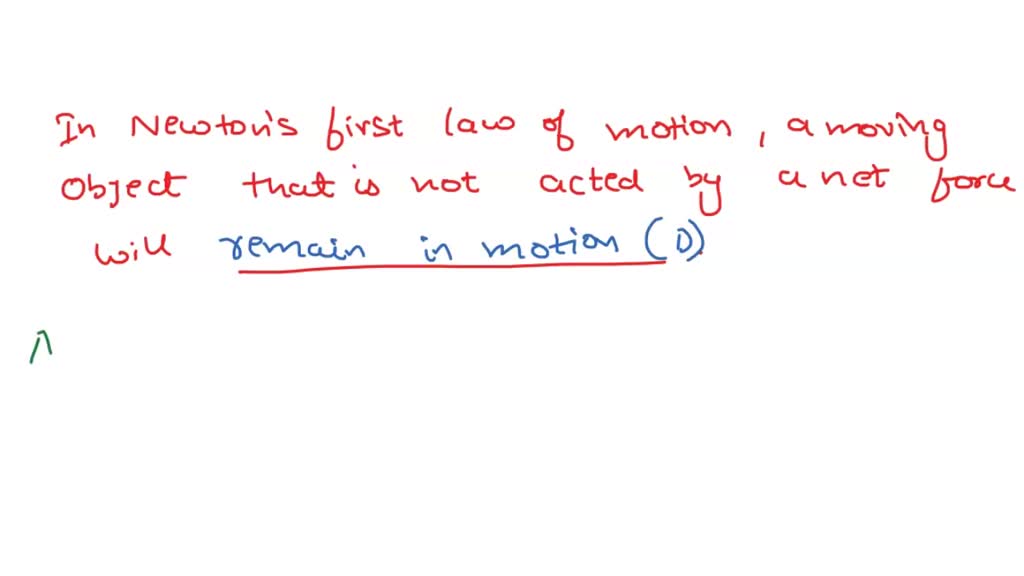 In Newton's first law of motion, a moving
object that is not acted by a net force
will remain in motion (D)